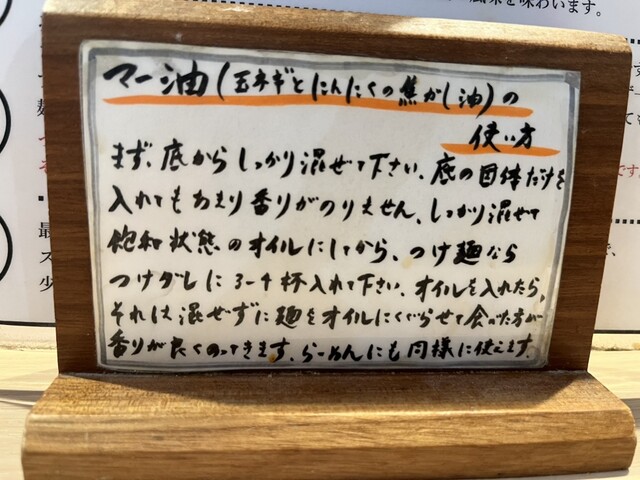 風味を味わいます。
マー油(玉ネギとにんにくの焦がし油)の
使い方
まず、底からしっかり混ぜて下さい、底の固体だけを
入れてもあまり香りがのりません、しっかり混ぜて
飽和状態のオイルにしてから、つけ麺なら
つけダレに3〜4杯入れて下さい、オイルを入れたら、
それは混ぜずに麺をオイルにくぐらせて食った方が
香りが良くのってきます、らーめんにも同様に使えます。